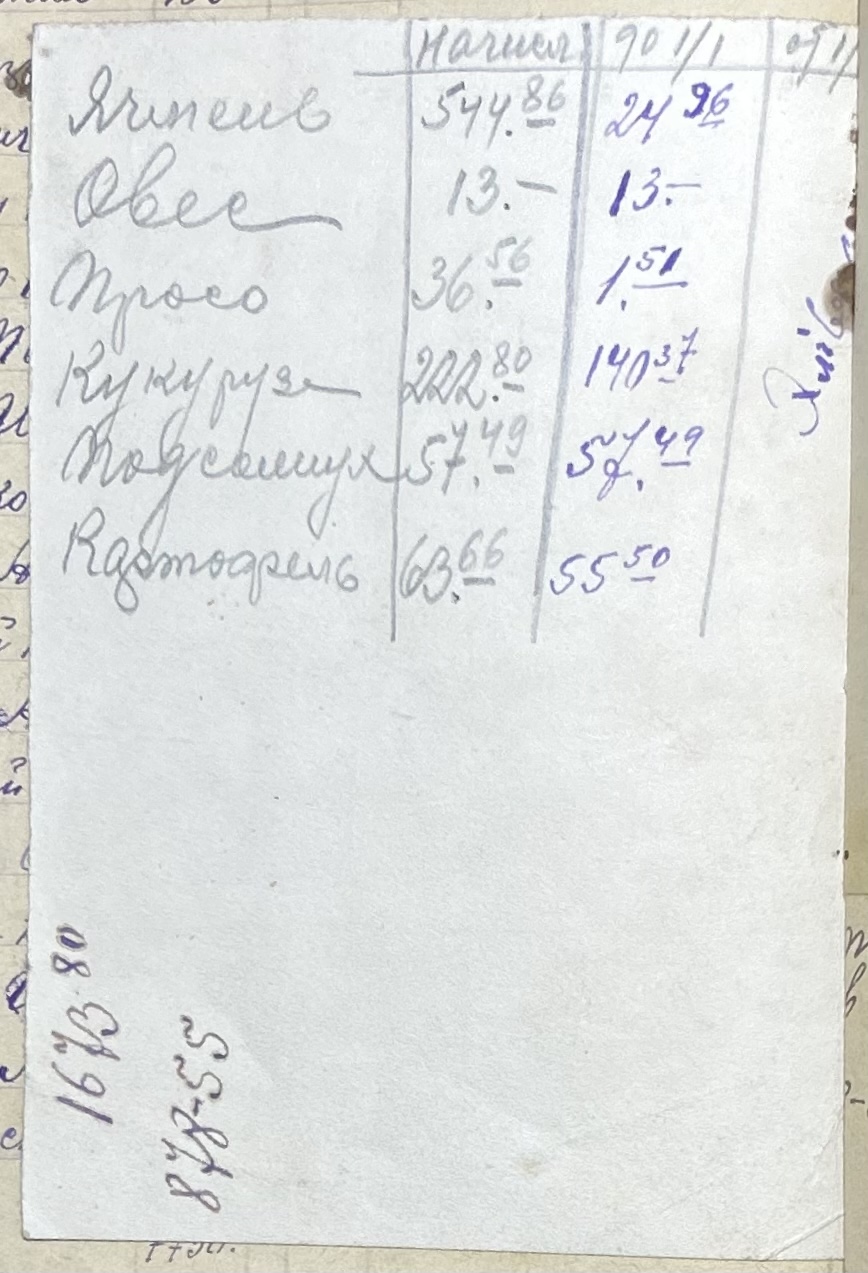 Начисл до 1/1
Ячмень 544.86 24 96
Овес 13.– 13.–
Просо 36.56 1.51
Кукуруза 222.80 140 37
Подсолнух 57.49 57.49
Картофель 63.66 55 50
1673 80
878-55